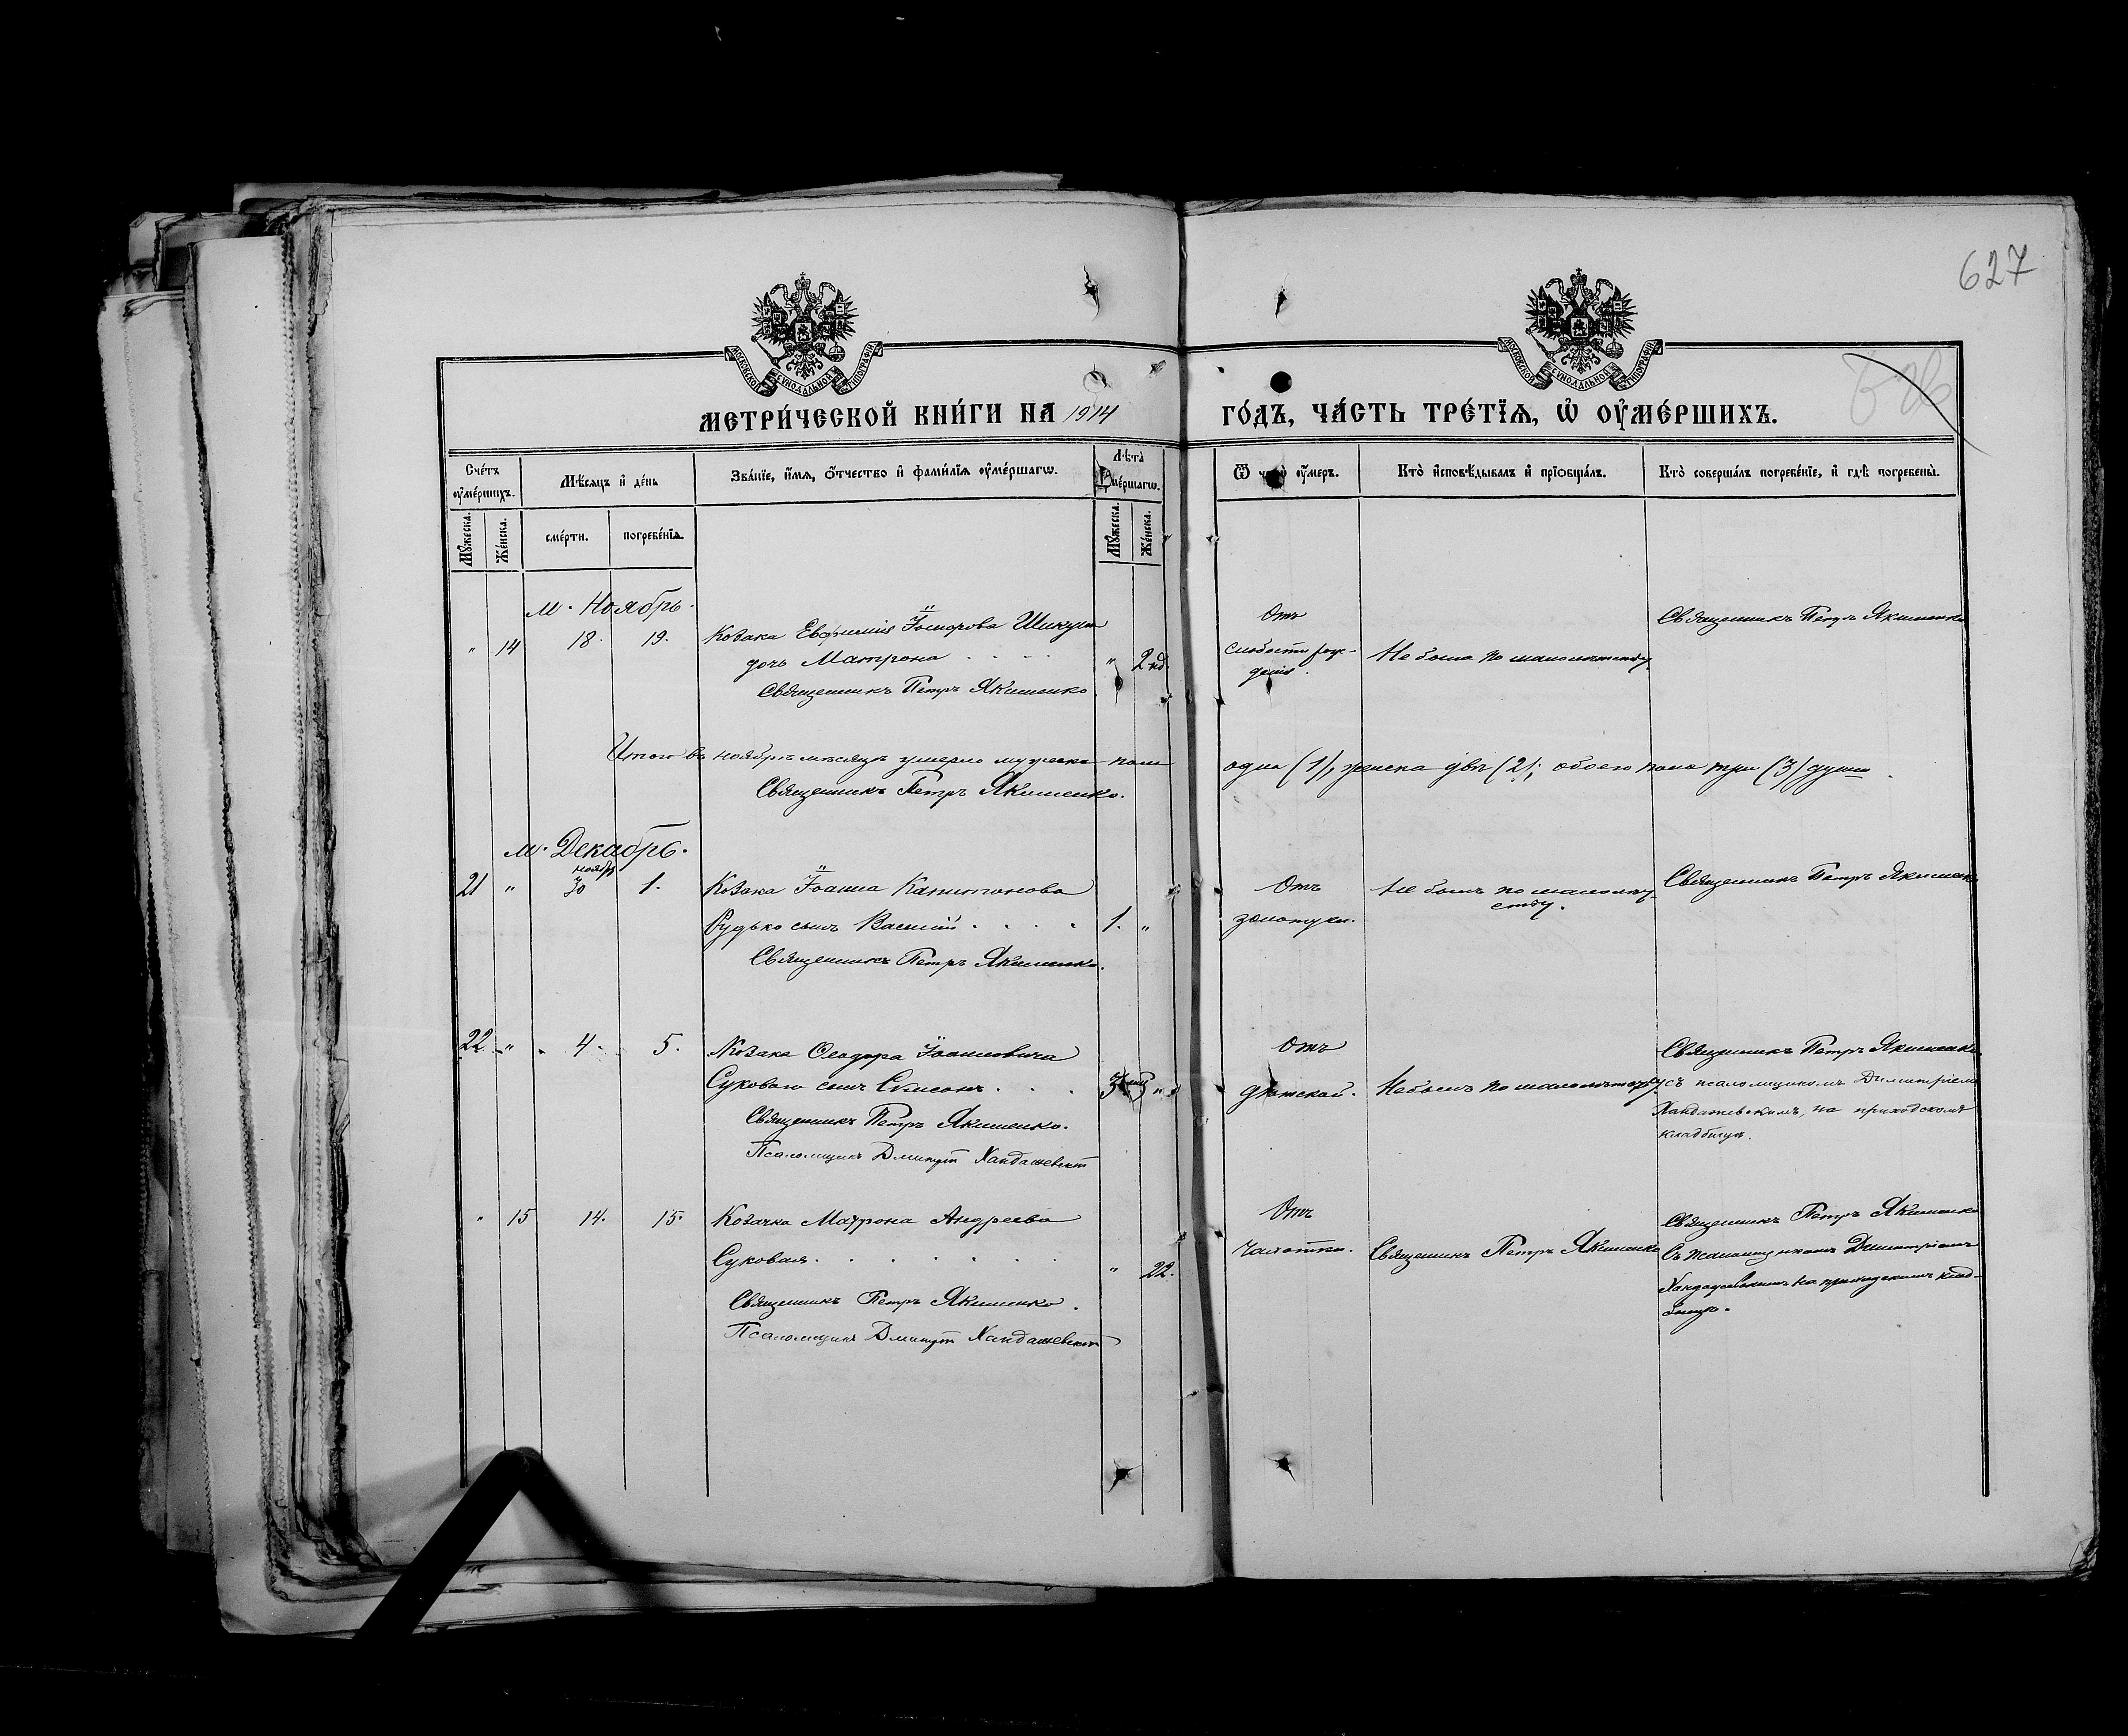 627
МОСКОВСКОЙ СѴНОДАЛЬНОЙ ТИПОГРАФІИ
МОСКОВСКОЙ СѴНОДАЛЬНОЙ ТИПОГРАФІИ
МЕТРИ́ЧЕСКОЙ КНИ́ГИ НА 1914 ГО́ДЪ, ЧА́СТЬ ТРЕ́ТЇѦ, Ѡ҆ ОУ҆МЕ́РШИХЪ.
Сче́тъ оу҆ме́ршихъ.
Мѣ́сяцъ и҆ де́нь
Зва́нїе, и҆́мя, ѻ҆́тчество и҆ фами́лїя оу҆ме́ршагѡ.
Лѣ́та оу҆ме́ршагѡ.
Ѿ чегѡ̀ оу҆́меръ.
Кто̀ и҆сповѣ́дывалъ и҆ прїѡбща́лъ.
Кто̀ соверша́лъ погребе́нїе, и҆ гдѣ̀ погребены̀.
Мꙋ́жеска. Же́нска.
сме́рти. погребе́нїя.
Мꙋ́жеска. Же́нска.
м. Ноябрь.
" 14 18. 19. Козака Евфимія
дочь Матрона " 2 нд.
Священникъ Петръ Якименко
Отъ
слабости рож-
денія.
Не была по малолѣтству
Священникъ Петръ Якименко
Итого въ ноябрѣ мѣсяцѣ умерло мужеска пола одна (1), женска двѣ (2); обоего пола три (3) души.
Священникъ Петръ Якименко.
м. Декабрь.
ноябр
21 " 30 1. Козака Іоанна Капитонова
Рудько сынъ Василій 1. "
Священникъ Петръ Якименко.
Отъ
золотухи.
Не былъ по малолѣт-
ству.
Священникъ Петръ Якименко
22. " 4. 5. Козака Ѳеодора Іоанновича
Суковаго сынъ Симеонъ "
Священникъ Петръ Якименко.
Псаломщикъ Дмитрій
Отъ
дѣтской.
Не былъ по малолѣтству
Священникъ Петръ Якименко
съ псаломщикомъ Димитріемъ
на приходскомъ
кладбищѣ.
" 15 14. 15. Козачка Матрона Андреева
Суковая. " 22.
Священникъ Петръ Якименко.
Псаломщикъ Дмитрій
Отъ
чахотки.
Священникъ Петръ Якименко
Священникъ Петръ Якименко
съ псаломщикомъ Димитріемъ
на приходскомъ клад-
бищѣ.